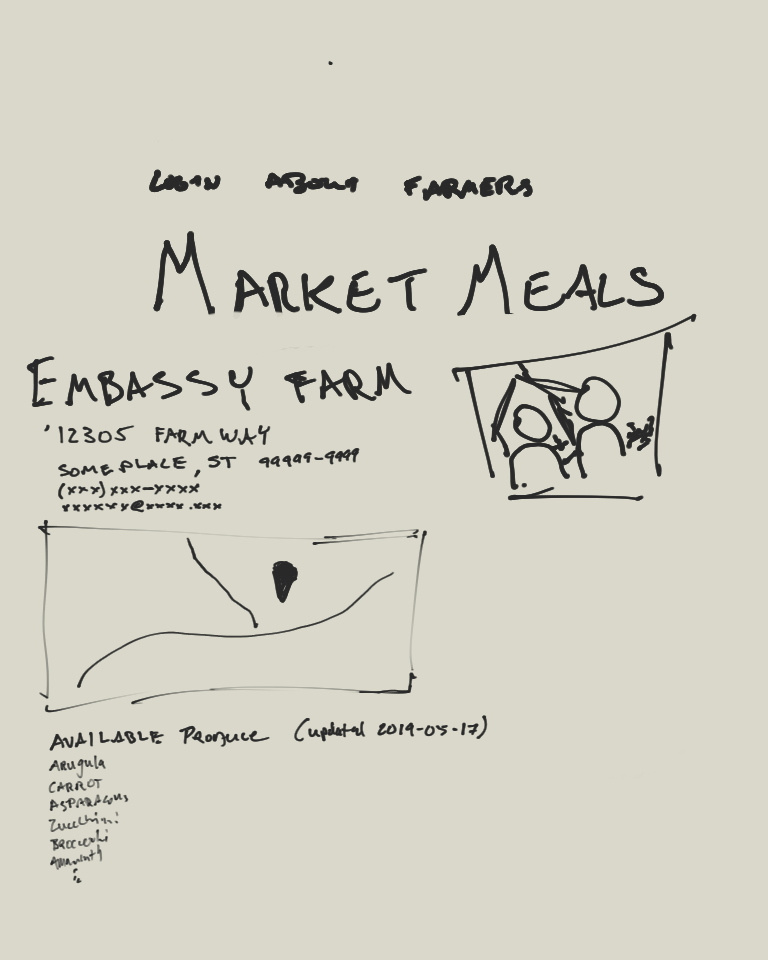 LOGIN ABOUT FARMERS
MARKET MEALS
EMBASSY FARM
12305 FARM WAY
SOMEPLACE, ST 99999-9999
(xxx) xxx-xxxx
xxxxxx@xxxx.xxx
AVAILABLE Produce (updated 2019-05-17)
Arugula
CARROT
ASPARAGUS
Zucchini
Broccoli